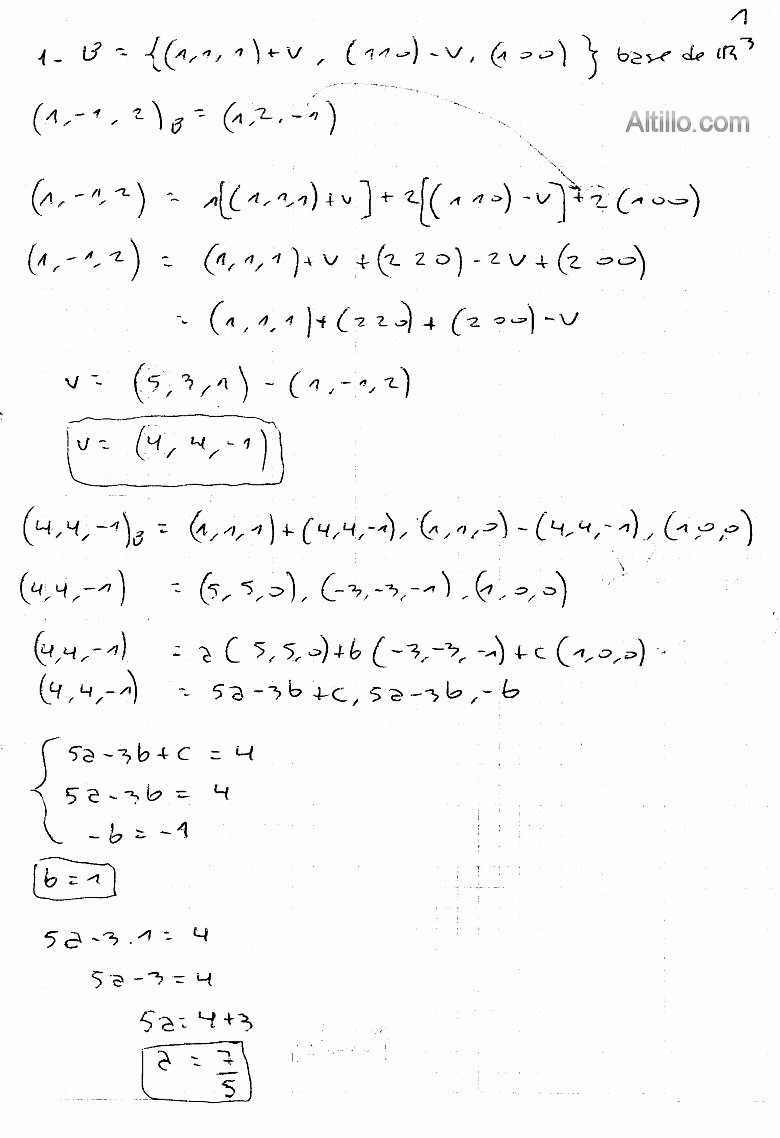 1
1- B = {(1,1,1)+v, (110)-v, (100)} base de IR³
(1,-1,2)B = (1,2,-1)
Altillo.com
(1,-1,2) = 1[(1,1,1)+v]+2[(110)-v]+2(100)
(1,-1,2) = (1,1,1)+v+(220)-2v+(200)
= (1,1,1)+(220)+(200)-v
v = (5,3,1)-(1,-1,2)
v = (4,4,-1)
(4,4,-1)B = (1,1,1)+(4,4,-1), (1,1,0)-(4,4,-1), (1,0,0)
(4,4,-1) = (5,5,0), (-3,-3,-1), (1,0,0)
(4,4,-1) = a(5,5,0)+b(-3,-3,-1)+c(1,0,0)
(4,4,-1) = 5a-3b+c, 5a-3b, -b
5a-3b+c = 4
5a-3b = 4
-b = -1
b = 1
5a-3.1 = 4
5a-3 = 4
5a = 4+3
a = 7/5